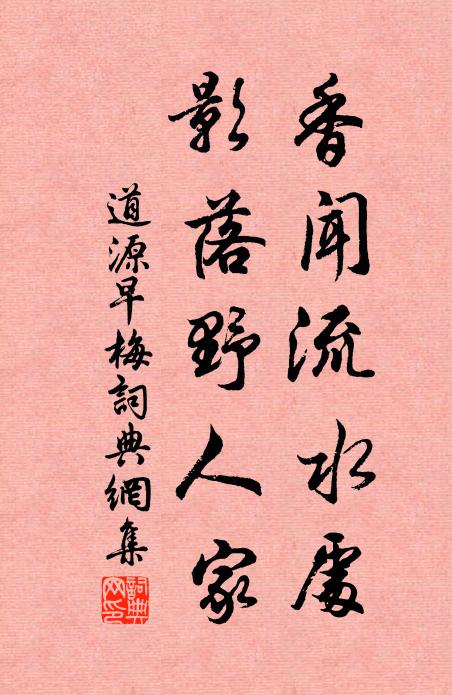 香聞流水處
影落野人家
道源早梅詞典網集
詞典網印